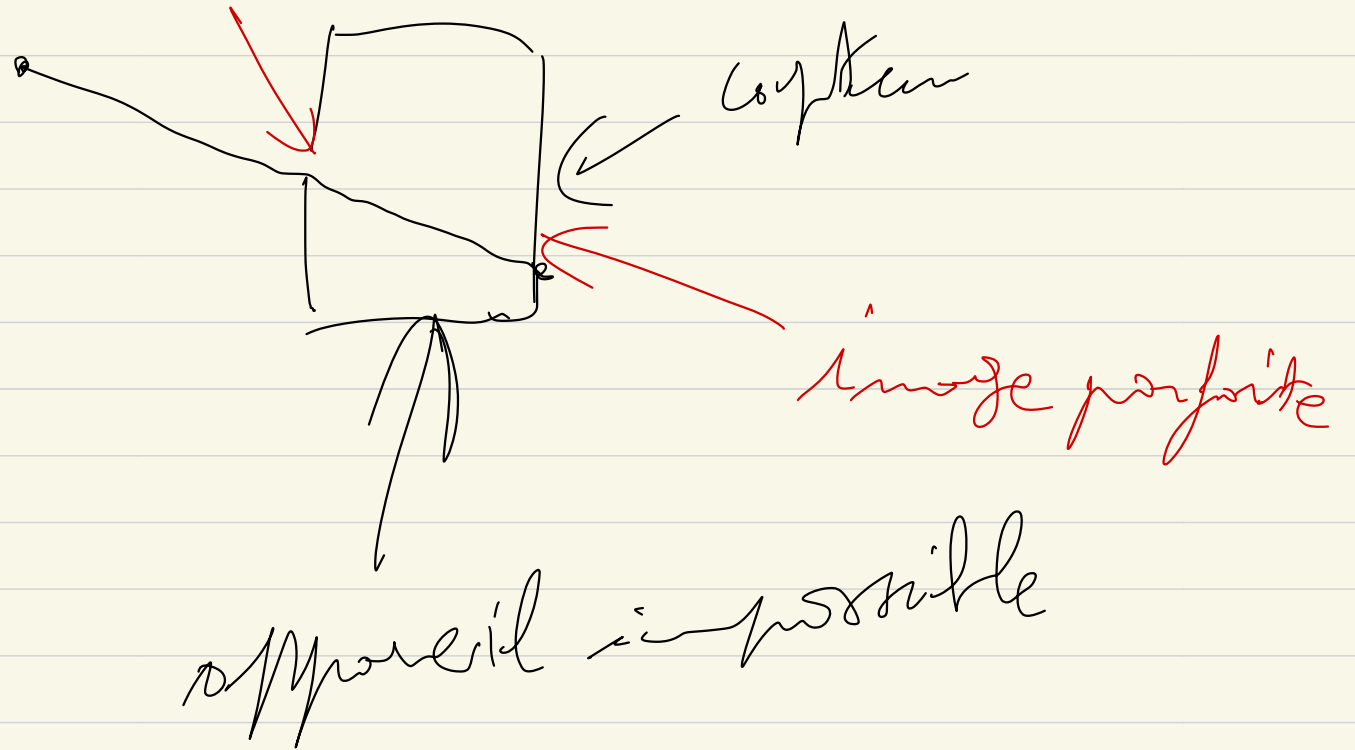 capteur
image parfaite
appareil impossible